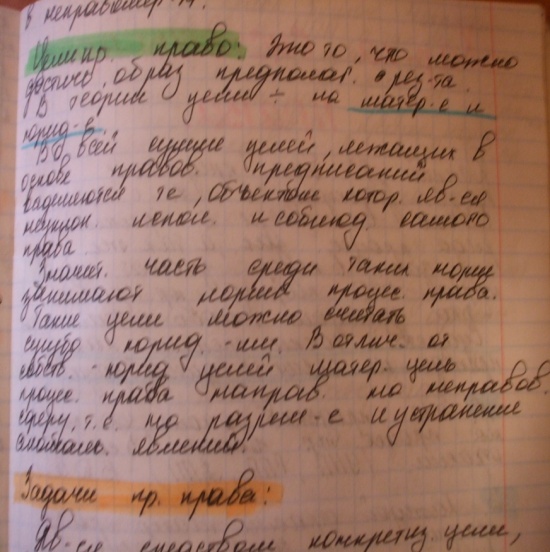 в неправомер-
Цели пр. права: Это то, что можно
достичь, образ предполаг. рез-та.
В теории цели ÷ на матер-е и
юрид-е.
Во всей сумме целей, лежащих в
основе правов. предписаний
выделяются те, объектом котор. яв-ся
неукцон. испол. и соблюд. самого
права
Значит. часть среди таких норм
занимают нормы процес. права.
Такие цели можно считать
сугубо юрид-ми. В отлич. от
собств.-юрид целей матер. цель
процес. права направ. на неправов.
сферу, т.е. на разреш-е и устранение
аномальн. явлений.
Задачи пр. права:
Яв-ся средством конкретиз. цели,